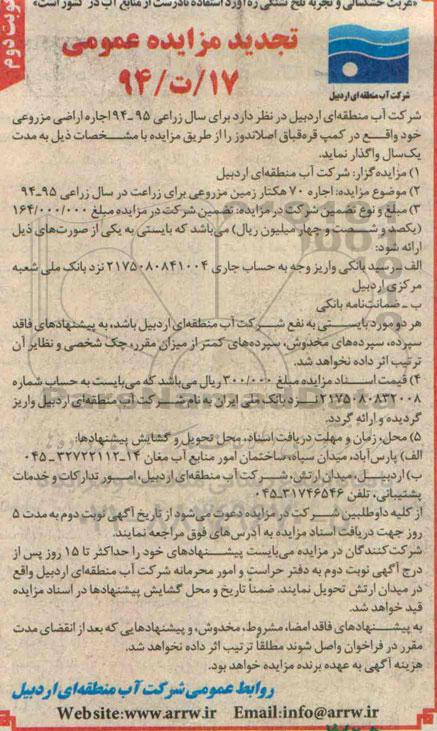 «غربت خشکسالی و تجربه تلخ تشنگی ره آورد استفاده نادرست از منابع آب در کشور است»
نوبت دوم
تجدید مزایده عمومی
۹۴/ت/۱۷
شرکت آب منطقه‌ای اردبیل
شرکت آب منطقه‌ای اردبیل در نظر دارد برای سال زراعی ۹۵-۹۴ اجاره اراضی مزروعی
خود واقع در کمپ قره‌قباق اصلاندوز را از طریق مزایده با مشخصات ذیل به مدت
یک‌سال واگذار نماید.
۱) مزایده‌گزار: شرکت آب منطقه‌ای اردبیل
۲) موضوع مزایده: اجاره ۷۰ هکتار زمین مزروعی برای زراعت در سال زراعی ۹۵-۹۴
۳) مبلغ و نوع تضمین شرکت در مزایده: تضمین شرکت در مزایده مبلغ ۱۶۴/۰۰۰/۰۰۰
(یکصد و شصت و چهار میلیون ریال) می‌باشد که بایستی به یکی از صورت‌های ذیل
ارائه شود:
الف-رسید بانکی واریز وجه به حساب جاری ۲۱۷۵۰۸۰۸۴۱۰۰۴ نزد بانک ملی شعبه
مرکزی اردبیل
ب-ضمانت‌نامه بانکی
هر دو مورد بایستی به نفع شرکت آب منطقه‌ای اردبیل باشد، به پیشنهادهای فاقد
سپرده، سپرده‌های مخدوش، سپرده‌های کمتر از میزان مقرر، چک شخصی و نظایر آن
ترتیب اثر داده نخواهد شد.
۴) قیمت اسناد مزایده مبلغ ۳۰۰/۰۰۰ ریال می‌باشد که می‌بایست به حساب شماره
۲۱۷۵۰۸۰۸۳۲۰۰۸ نزد بانک ملی ایران به نام شرکت آب منطقه‌ای اردبیل واریز
گردیده و ارائه گردد.
۵) محل، زمان و مهلت دریافت اسناد، محل تحویل و گشایش پیشنهادها:
الف) پارس‌آباد، میدان سپاه، ساختمان امور منابع آب مغان ۱۴-۳۲۷۲۲۱۱۲-۰۴۵
ب) اردبیل، میدان ارتش، شرکت آب منطقه‌ای اردبیل، امور تدارکات و خدمات
پشتیبانی، تلفن ۳۱۷۴۶۵۴۶-۰۴۵
از کلیه داوطلبین شرکت در مزایده دعوت می‌شود از تاریخ آگهی نوبت دوم به مدت ۵
روز جهت دریافت اسناد مزایده به آدرس‌های فوق مراجعه نمایند.
شرکت‌کنندگان در مزایده می‌بایست پیشنهادهای خود را حداکثر تا ۱۵ روز پس از
درج آگهی نوبت دوم به دفتر حراست و امور محرمانه شرکت آب منطقه‌ای اردبیل واقع
در میدان ارتش تحویل نمایند. ضمناً تاریخ و محل گشایش پیشنهادها در اسناد مزایده
قید خواهد شد.
به پیشنهادهای فاقد امضا، مشروط، مخدوش، و پیشنهادهایی که بعد از انقضای مدت
مقرر در فراخوان واصل شوند مطلقاً ترتیب اثر داده نخواهد شد.
هزینه آگهی به عهده برنده مزایده خواهد بود.
روابط عمومی شرکت آب منطقه‌ای اردبیل
Website:www.arrw.ir Email:info@arrw.ir